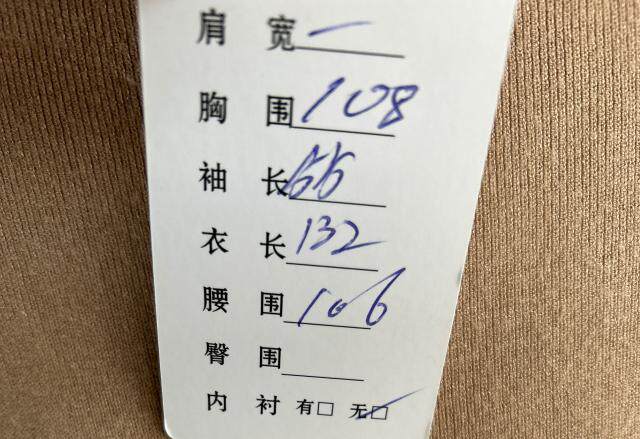 肩 宽 一
胸 围 108
袖 长
衣 长 132
腰 围 106
臀 围
内 衬 有□ 无☑